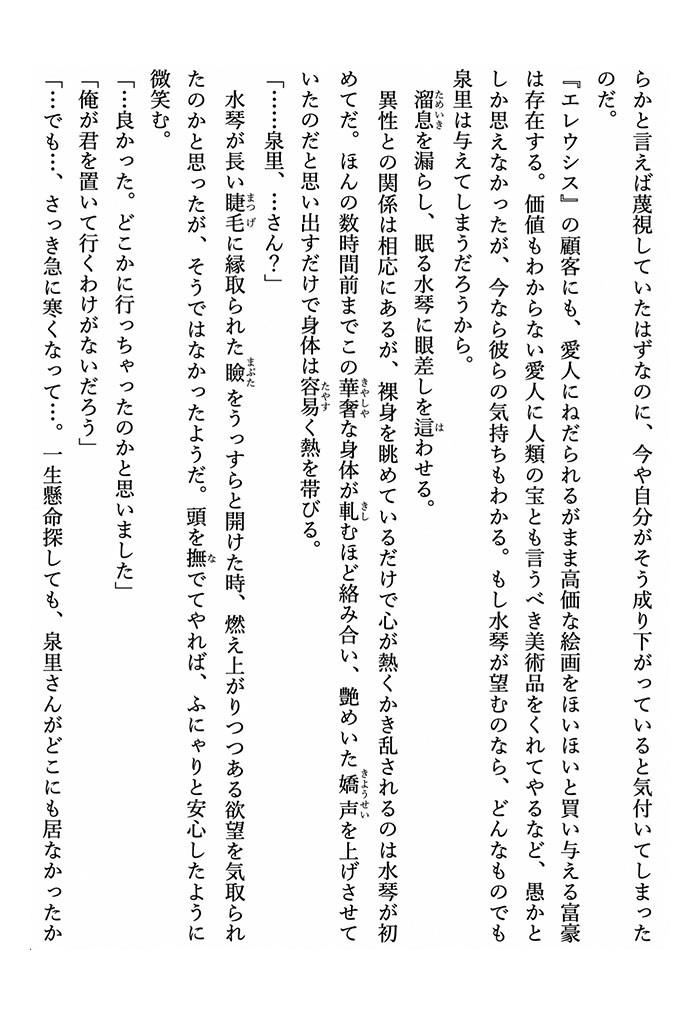 らかと言えば蔑視していたはずなのに、今や自分がそう成り下がっていると気付いてしまった
のだ。
『エレウシス』の顧客にも、愛人にねだられるがまま高価な絵画をほいほいと買い与える富豪
は存在する。価値もわからない愛人に人類の宝とも言うべき美術品をくれてやるなど、愚かと
しか思えなかったが、今なら彼らの気持ちもわかる。もし水琴が望むのなら、どんなものでも
泉里は与えてしまうだろうから。
溜息を漏らし、眠る水琴に眼差しを這わせる。
異性との関係は相応にあるが、裸身を眺めているだけで心が熱くかき乱されるのは水琴が初
めてだ。ほんの数時間前までこの華奢な身体が軋むほど絡み合い、艶めいた嬌声を上げさせて
いたのだと思い出すだけで身体は容易く熱を帯びる。
「……泉里、…さん？」
水琴が長い睫毛に縁取られた瞼をうっすらと開けた時、燃え上がりつつある欲望を気取られ
たのかと思ったが、そうではなかったようだ。頭を撫でてやれば、ふにゃりと安心したように
微笑む。
「…良かった。どこかに行っちゃったのかと思いました」
「俺が君を置いて行くわけがないだろう」
「…でも…、さっき急に寒くなって…。一生懸命探しても、泉里さんがどこにも居なかったか